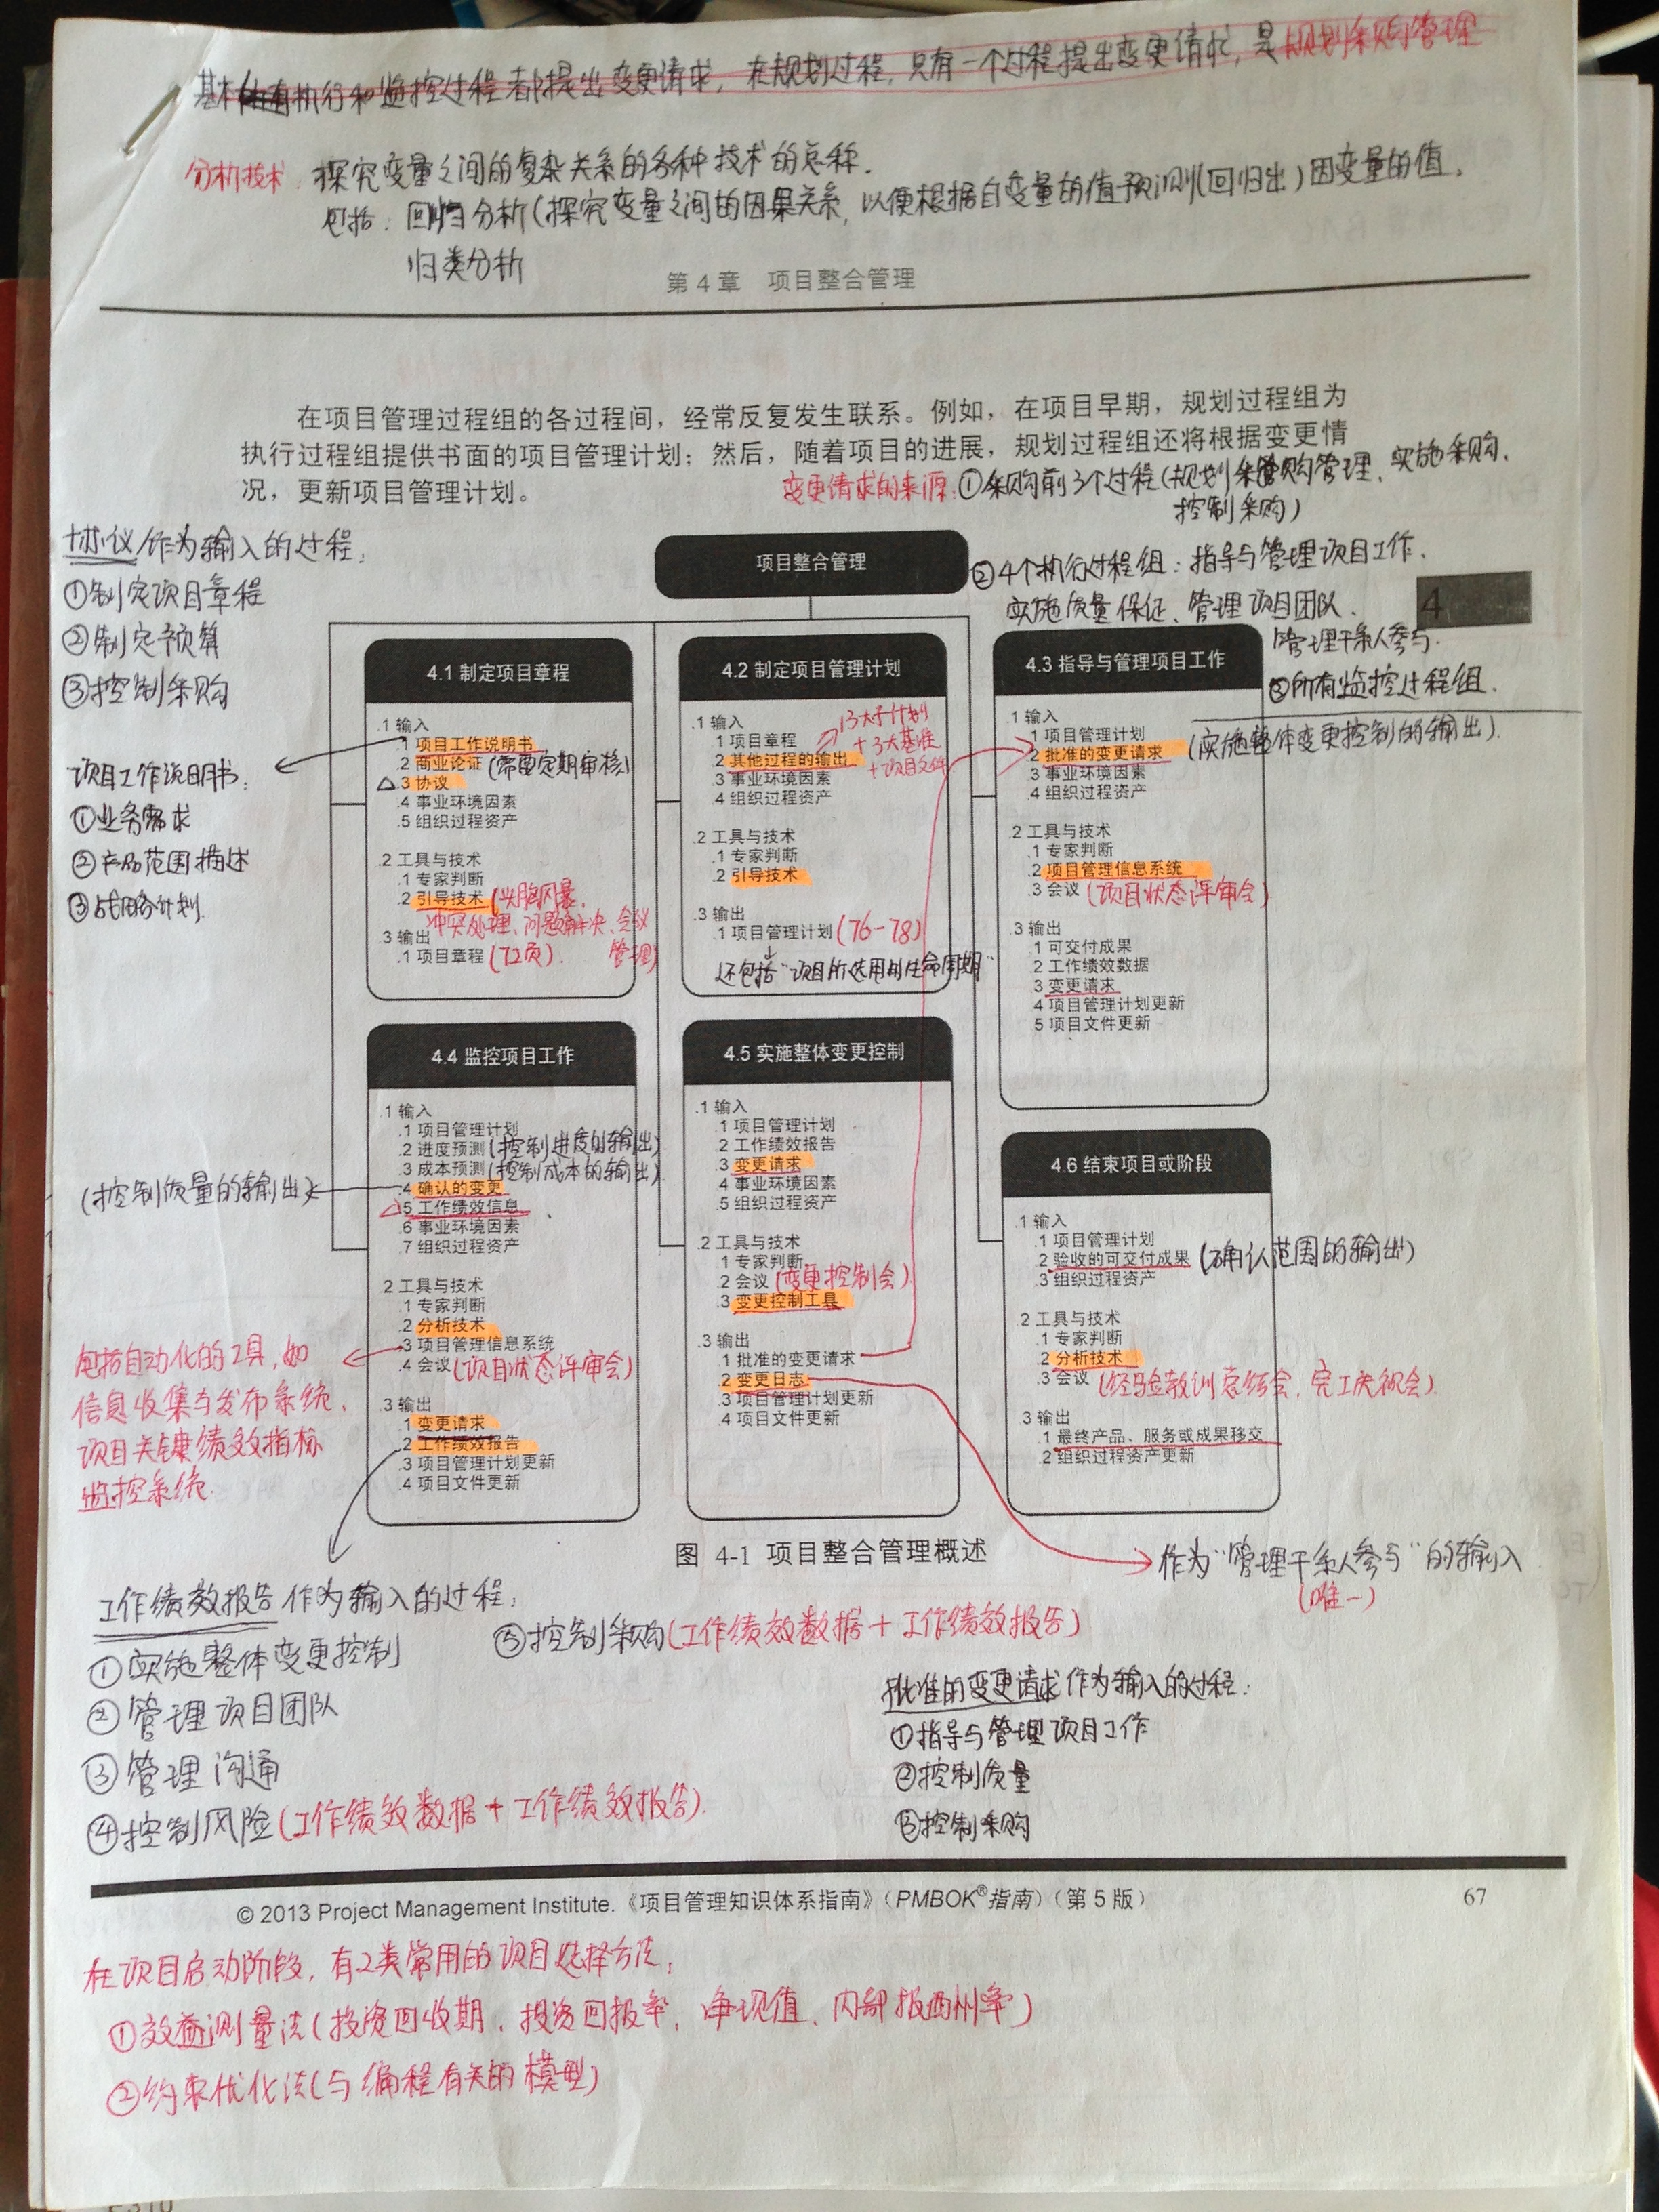 基本所有执行和监控过程都提出变更请求，在规划过程，只有一个过程提出变更请求，是规划采购管理
分析技术：探究变量之间的复杂关系的各种技术的总称.
包括：回归分析(探究变量之间的因果关系，以便根据自变量的值预测(回归出)因变量的值.
归类分析
第4章 项目整合管理
在项目管理过程组的各过程间，经常反复发生联系。例如，在项目早期，规划过程组为
执行过程组提供书面的项目管理计划；然后，随着项目的进展，规划过程组还将根据变更情
况，更新项目管理计划。
变更请求的来源：①采购前3个过程(规划采购管理、实施采购、
控制采购)
②4个执行过程组：指导与管理项目工作、
实施质量保证、管理项目团队、
管理干系人参与.
③所有监控过程组.
协议作为输入的过程：
①制定项目章程
②制定预算
③控制采购
项目工作说明书：
①业务需求
②产品范围描述
③战略计划.
项目整合管理
4
4.1 制定项目章程
.1 输入
.1 项目工作说明书
.2 商业论证(需要定期审核)
△.3 协议
.4 事业环境因素
.5 组织过程资产
.2 工具与技术
.1 专家判断
.2 引导技术(头脑风暴、
冲突处理、问题解决、会议
管理)
.3 输出
.1 项目章程(72页).
4.2 制定项目管理计划
.1 输入
.1 项目章程
.2 其他过程的输出
13大子计划
+3大基准
+项目文件
.3 事业环境因素
.4 组织过程资产
.2 工具与技术
.1 专家判断
.2 引导技术
.3 输出
.1 项目管理计划(76-78)
还包括"项目所选用的生命周期"
4.3 指导与管理项目工作
.1 输入
.1 项目管理计划
.2 批准的变更请求(实施整体变更控制的输出).
.3 事业环境因素
.4 组织过程资产
.2 工具与技术
.1 专家判断
.2 项目管理信息系统
.3 会议(项目状态评审会)
.3 输出
.1 可交付成果
.2 工作绩效数据
.3 变更请求
.4 项目管理计划更新
.5 项目文件更新
4.4 监控项目工作
.1 输入
.1 项目管理计划
.2 进度预测(控制进度的输出)
.3 成本预测(控制成本的输出)
.4 确认的变更
(控制质量的输出)
△.5 工作绩效信息
.6 事业环境因素
.7 组织过程资产
.2 工具与技术
.1 专家判断
.2 分析技术
.3 项目管理信息系统
.4 会议(项目状态评审会)
.3 输出
.1 变更请求
.2 工作绩效报告
.3 项目管理计划更新
.4 项目文件更新
包括自动化的工具，如
信息收集与发布系统、
项目关键绩效指标
监控系统.
4.5 实施整体变更控制
.1 输入
.1 项目管理计划
.2 工作绩效报告
.3 变更请求
.4 事业环境因素
.5 组织过程资产
.2 工具与技术
.1 专家判断
.2 会议(变更控制会)
.3 变更控制工具
.3 输出
.1 批准的变更请求
.2 变更日志
.3 项目管理计划更新
.4 项目文件更新
4.6 结束项目或阶段
.1 输入
.1 项目管理计划
.2 验收的可交付成果(确认范围的输出)
.3 组织过程资产
.2 工具与技术
.1 专家判断
.2 分析技术
.3 会议(经验教训总结会，完工庆祝会).
.3 输出
.1 最终产品、服务或成果移交
.2 组织过程资产更新
图 4-1 项目整合管理概述
作为"管理干系人参与"的输入
(唯一)
工作绩效报告作为输入的过程：
①实施整体变更控制
②管理项目团队
③管理沟通
④控制风险(工作绩效数据+工作绩效报告).
⑤控制采购(工作绩效数据+工作绩效报告)
批准的变更请求作为输入的过程：
①指导与管理项目工作
②控制质量
③控制采购
© 2013 Project Management Institute.《项目管理知识体系指南》（PMBOK®指南）（第5版） 67
在项目启动阶段，有2类常用的项目选择方法：
①效益测量法(投资回收期、投资回报率、净现值、内部报酬率)
②约束优化法(与编程有关的模型)